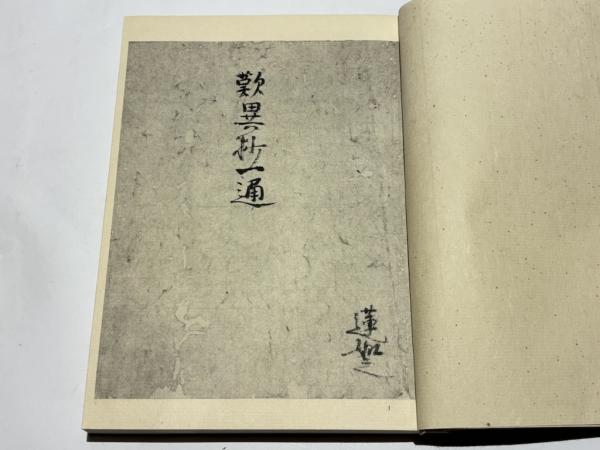 歎異抄一通
蓮如之